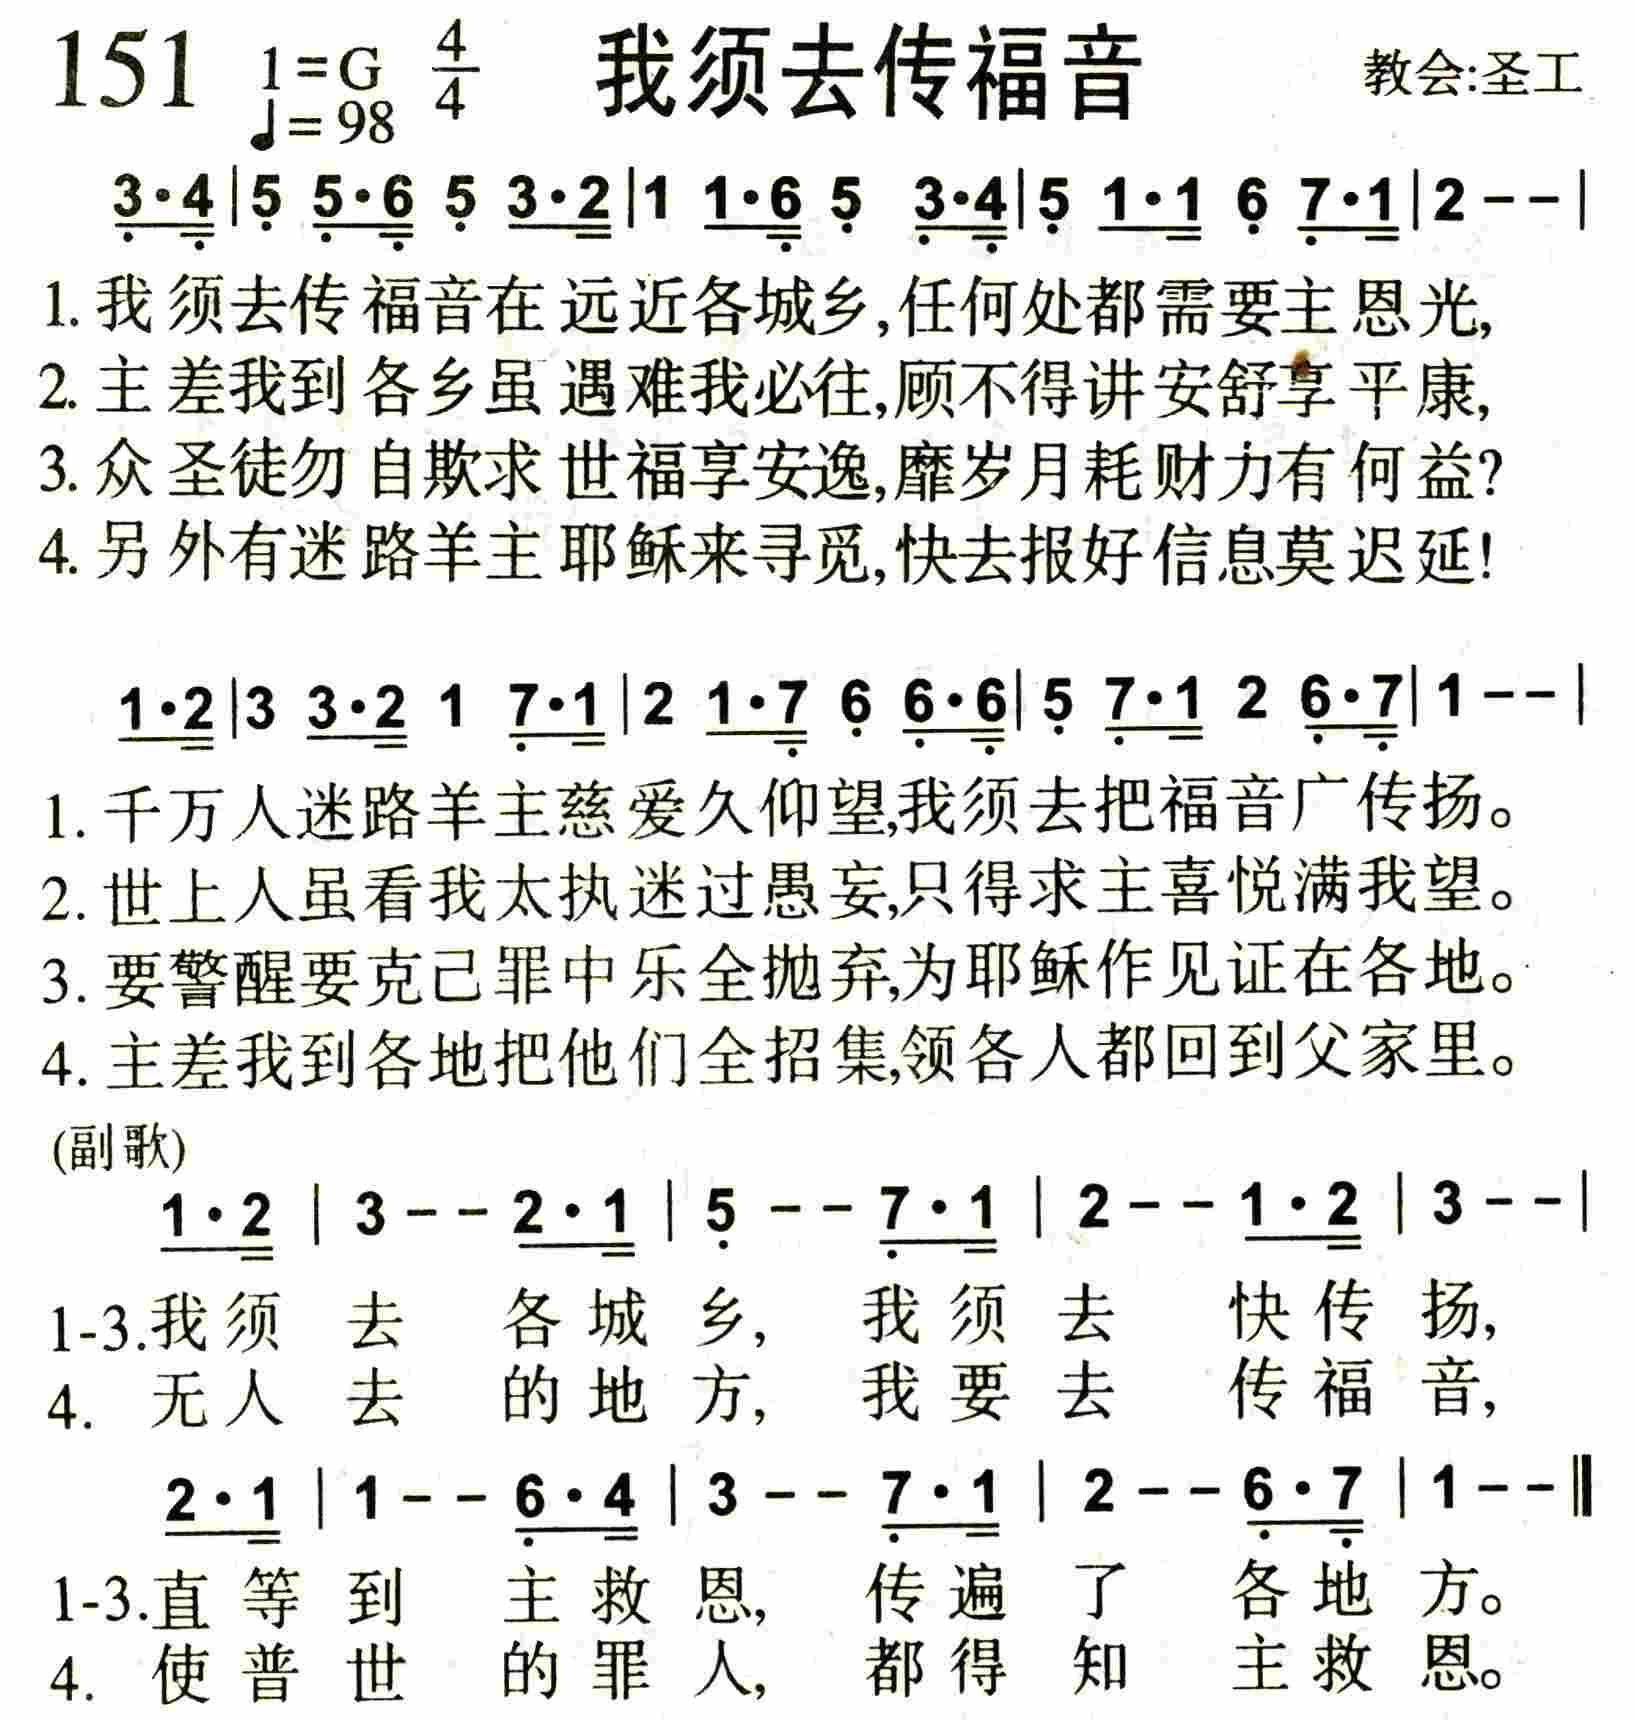 151 1=G 4/4 我须去传福音 教会:圣工
♩=98
3·4|5 5·6 5 3·2|1 1·6 5 3·4|5 1·1 6 7·1|2--|
1.我须去传福音在远近各城乡,任何处都需要主恩光,
2.主差我到各乡虽遇难我必往,顾不得讲安舒享平康,
3.众圣徒勿自欺求世福享安逸,靡岁月耗财力有何益?
4.另外有迷路羊主耶稣来寻觅,快去报好信息莫迟延!
1·2|3 3·2 1 7·1|2 1·7 6 6·6|5 7·1 2 6·7|1--|
1.千万人迷路羊主慈爱久仰望,我须去把福音广传扬。
2.世上人虽看我太执迷过愚妄,只得求主喜悦满我望。
3.要警醒要克己罪中乐全抛弃,为耶稣作见证在各地。
4.主差我到各地把他们全招集,领各人都回到父家里。
(副歌)
1·2|3--2·1|5--7·1|2--1·2|3--|
1-3.我须去 各城乡, 我须去 快传扬,
4. 无人去 的地方, 我要去 传福音,
2·1|1--6·4|3--7·1|2--6·7|1--‖
1-3.直等到 主救恩, 传遍了 各地方。
4. 使普世 的罪人, 都得知 主救恩。